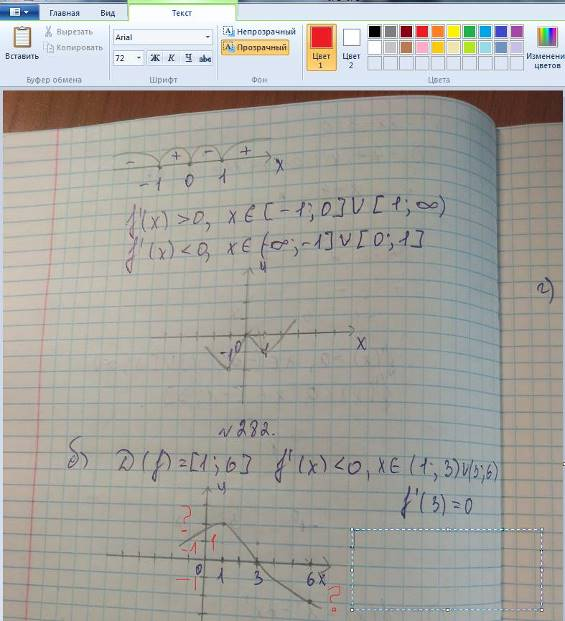 Главная Вид Текст
Вставить
Вырезать
Копировать
Буфер обмена
Arial
72
Ж К Ч abc
Шрифт
Непрозрачный
Прозрачный
Фон
Цвет 1
Цвет 2
Изменение цветов
Цвета
- + - +
-1 0 1 x
f'(x) > 0, x ∈ [-1; 0] ∪ [1; ∞)
f'(x) < 0, x ∈ (-∞; -1] ∪ [0; 1]
y
г)
-1 0 1 x
№282.
б) D(f) = [1; 6] f'(x) < 0, x ∈ (1; 3) ∪ (3; 6)
f'(3) = 0
y
?
-1 1
0 1 3 6 x
-1
?